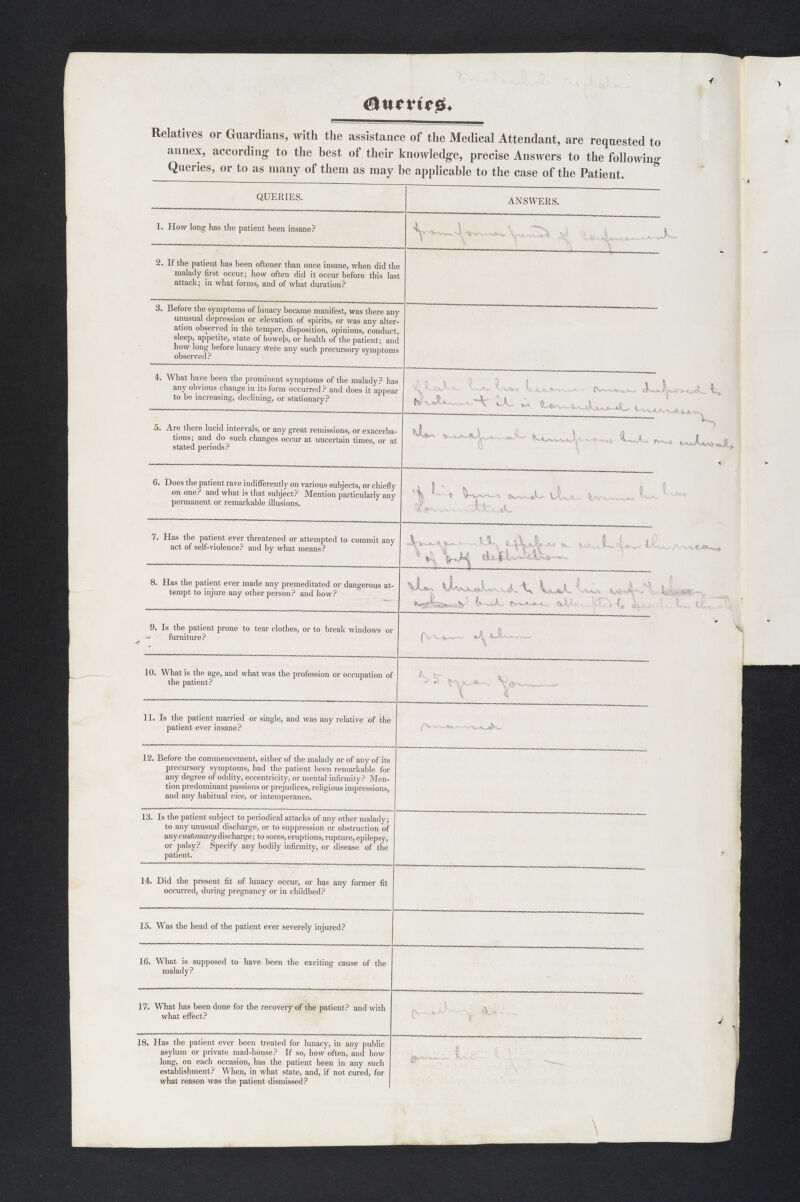 Queries.
Relatives or Guardians, with the assistance of the Medical Attendant, are requested to
annex, according to the best of their knowledge, precise Answers to the following
Queries, or to as many of them as may be applicable to the case of the Patient.
QUERIES.
ANSWERS.
1. How long has the patient been insane?
from former period of confinement
2. If the patient has been oftener than once insane, when did the
malady first occur; how often did it occur before this last
attack; in what forms, and of what duration?
3. Before the symptoms of lunacy became manifest, was there any
unusual depression or elevation of spirits, or was any alter-
ation observed in the temper, disposition, opinions, conduct,
sleep, appetite, state of bowels, or health of the patient; and
how long before lunacy were any such precursory symptoms
observed?
4. What have been the prominent symptoms of the malady? has
any obvious change in its form occurred? and does it appear
to be increasing, declining, or stationary?
of late he has become more disposed to
it is considered increasing
5. Are there lucid intervals, or any great remissions, or exacerba-
tions; and do such changes occur at uncertain times, or at
stated periods?
has occasional remissions but no intervals
6. Does the patient rave indifferently on various subjects, or chiefly
on one? and what is that subject? Mention particularly any
permanent or remarkable illusions.
of his sins and the crimes he has
committed
7. Has the patient ever threatened or attempted to commit any
act of self-violence? and by what means?
frequently expresses a wish for the means
of self destruction
8. Has the patient ever made any premeditated or dangerous at-
tempt to injure any other person? and how?
has threatened to his wife
but never attempted to
9. Is the patient prone to tear clothes, or to break windows or
furniture?
of them
10. What is the age, and what was the profession or occupation of
the patient?
35 years
11. Is the patient married or single, and was any relative of the
patient ever insane?
married
12. Before the commencement, either of the malady or of any of its
precursory symptoms, had the patient been remarkable for
any degree of oddity, eccentricity, or mental infirmity? Men-
tion predominant passions or prejudices, religious impressions,
and any habitual vice, or intemperance.
13. Is the patient subject to periodical attacks of any other malady;
to any unusual discharge, or to suppression or obstruction of
any customary discharge; to sores, eruptions, rupture, epilepsy,
or palsy? Specify any bodily infirmity, or disease of the
patient.
14. Did the present fit of lunacy occur, or has any former fit
occurred, during pregnancy or in childbed?
15. Was the head of the patient ever severely injured?
16. What is supposed to have been the exciting cause of the
malady?
17. What has been done for the recovery of the patient? and with
what effect?
nothing done
18. Has the patient ever been treated for lunacy, in any public
asylum or private mad-house? If so, how often, and how
long, on each occasion, has the patient been in any such
establishment? When, in what state, and, if not cured, for
what reason was the patient dismissed?